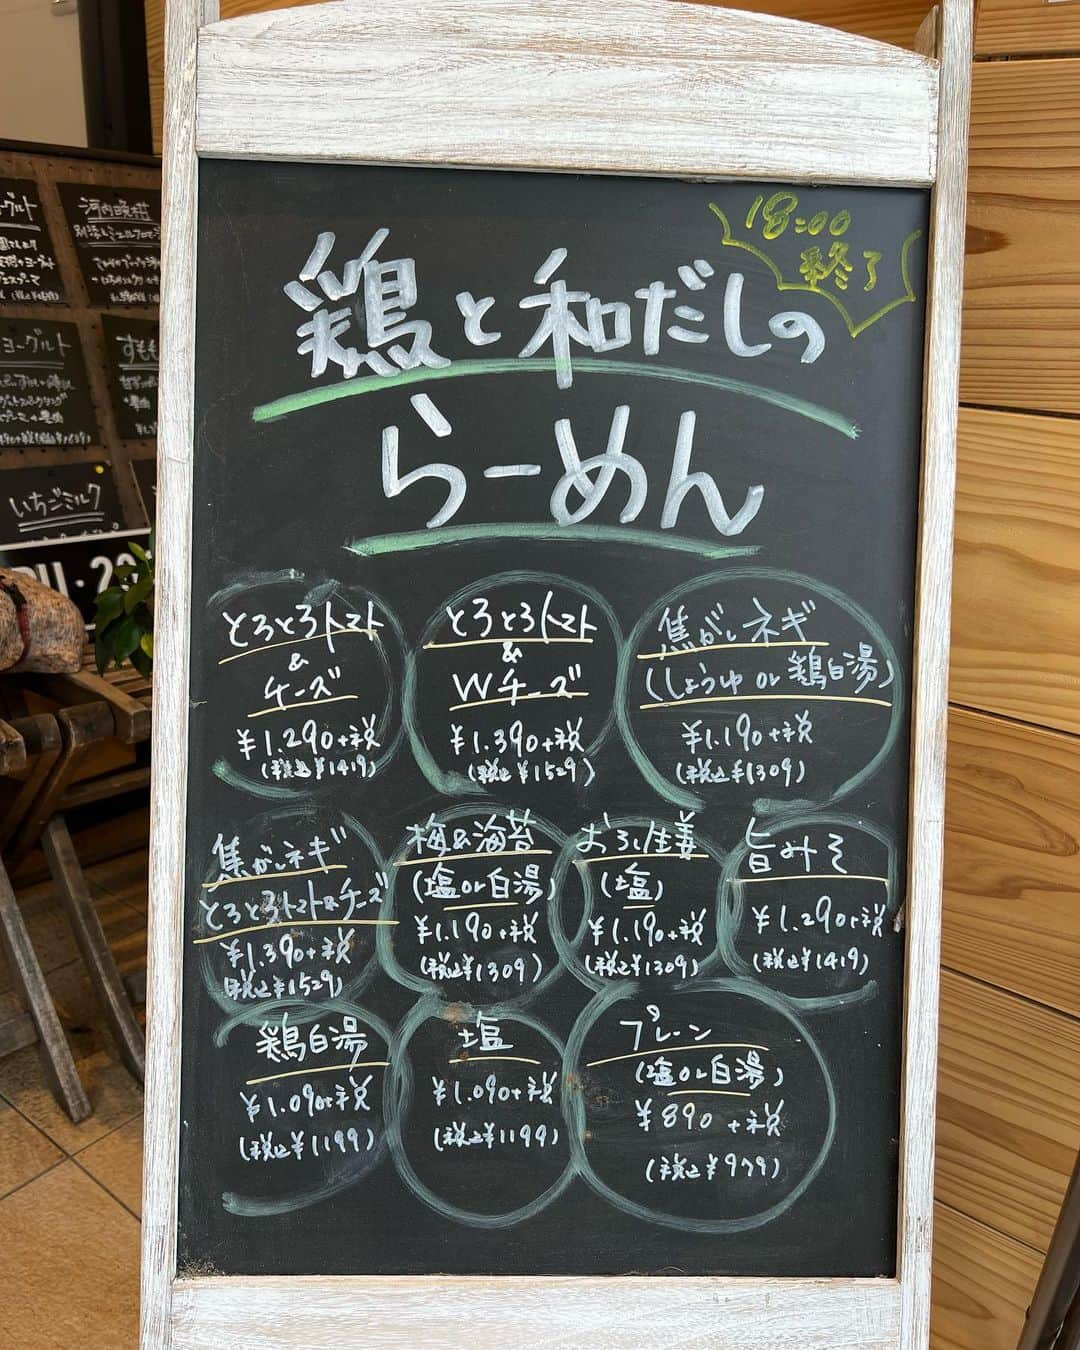 18:00
終了
鶏と和だしの
らーめん
とろとろトマト
&
チーズ
¥1.290+税
(税込¥1419)
とろとろトマト
&
Wチーズ
¥1.390+税
(税込¥1529)
焦がしネギ
(しょうゆ or 鶏白湯)
¥1.190+税
(税込¥1309)
焦がしネギ
とろとろトマト&チーズ
¥1.390+税
税込¥1529)
梅&海苔
(塩or白湯)
¥1.190+税
(税込¥1309)
おろし生姜
(塩)
¥1.190+税
(税込¥1309)
旨みそ
¥1.290+税
(税込¥1419)
鶏白湯
¥1.090+税
(税込¥1199)
塩
¥1.090+税
(税込¥1199)
プレーン
(塩or白湯)
¥890+税
(税込¥979)
ーグルト
河内晩柑
ヨーグルト
すもも
いちごミルク